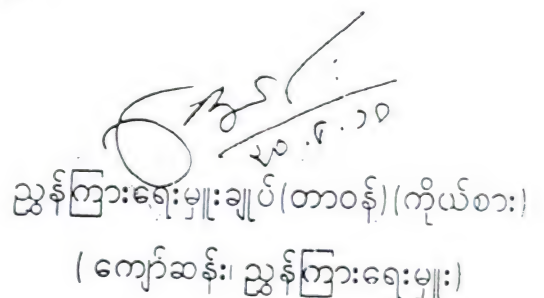 ၂၀.၆.၁၀
ညွှန်ကြားရေးမှူးချုပ်(တာဝန်)(ကိုယ်စား)
(ကျော်ဆန်း၊ ညွှန်ကြားရေးမှူး)